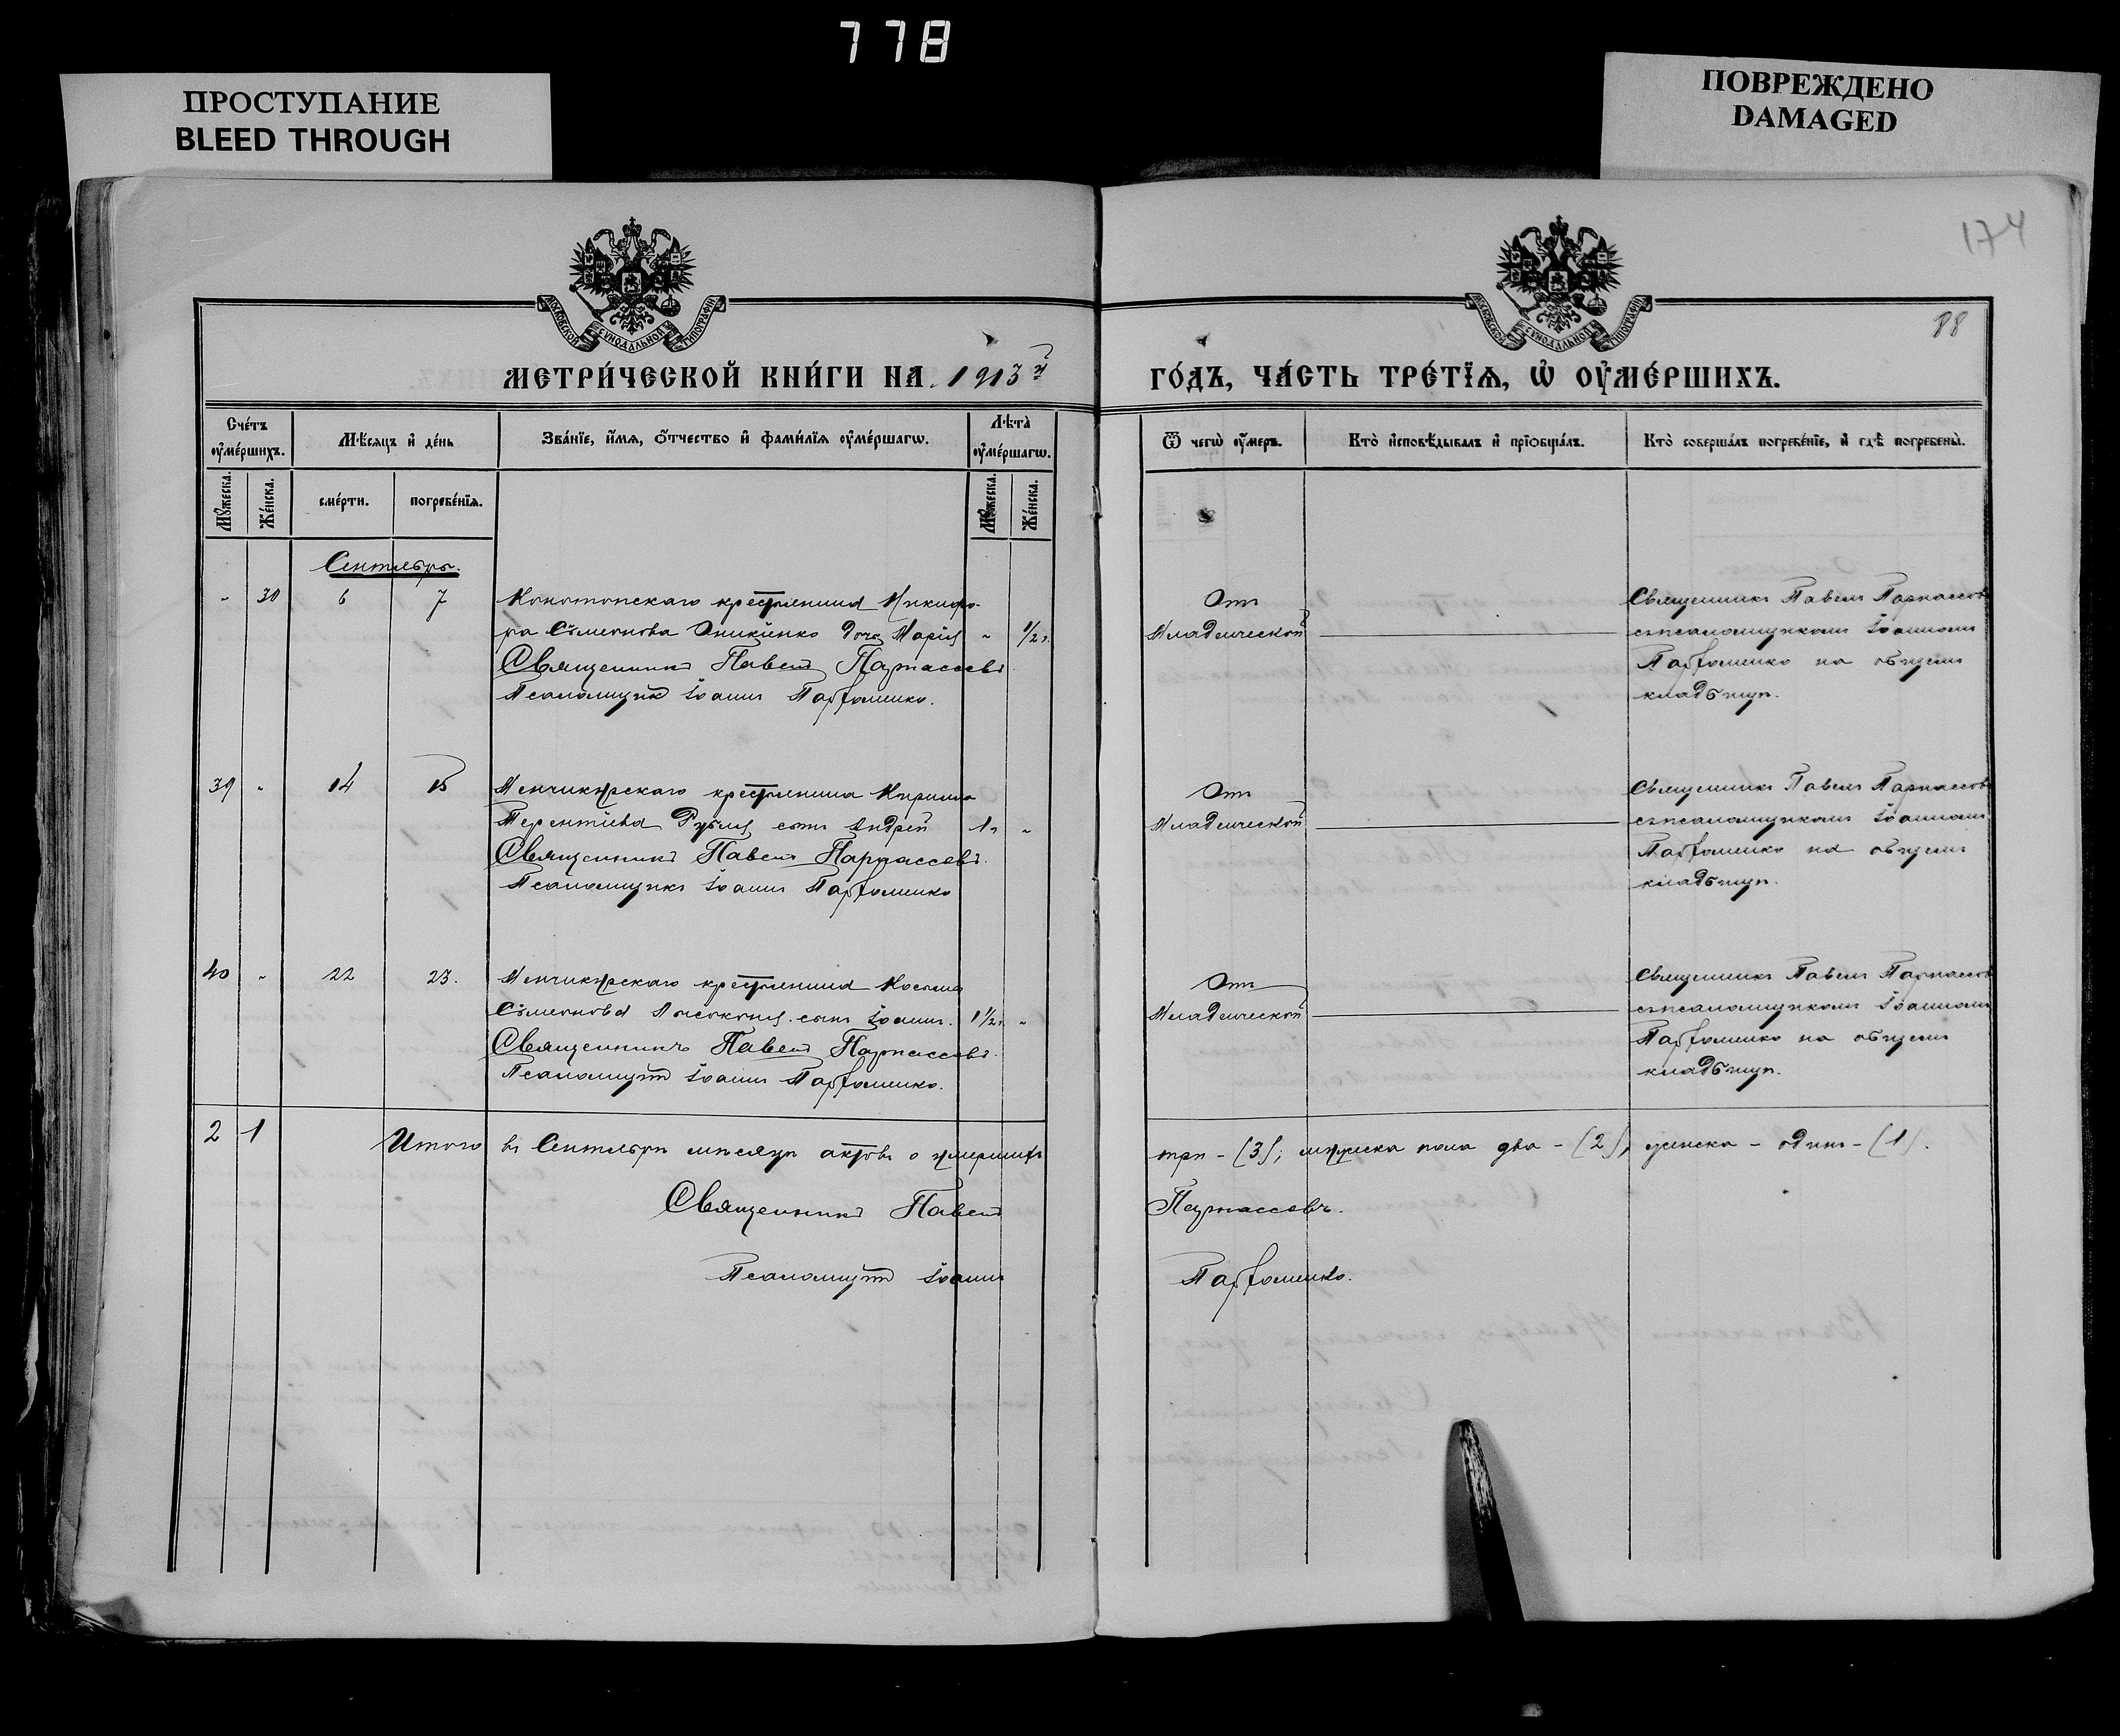 778
ПРОСТУПАНИЕ
BLEED THROUGH
ПОВРЕЖДЕНО
DAMAGED
174
88
МОСКОВСКОЙ СѴНОДАЛЬНОЙ ТИПОГРАФІИ
МОСКОВСКОЙ СѴНОДАЛЬНОЙ ТИПОГРАФІИ
МЕТРИ́ЧЕСКОЙ КНИ́ГИ НА 1913й ГО́ДЪ, ЧА́СТЬ ТРЕ́ТЇѦ, Ѡ҆ ОУ҆МЕ́РШИХЪ.
Сче́тъ оу҆ме́ршихъ.
Мѣ́сяцъ и҆ де́нь
Зва́нїе, и҆́мя, ѻ҆́тчество и҆ фами́лїя оу҆ме́ршагѡ.
Лѣта̀ оу҆ме́ршагѡ.
Ѿ чегѡ̀ оу҆́меръ.
Кто̀ и҆сповѣ́дывалъ и҆ прїѡбща́лъ.
Кто̀ соверша́лъ погребе́нїе, и҆ гдѣ̀ погребены̀.
Мꙋ́жеска.
Же́нска.
сме́рти.
погребе́нїя.
Мꙋ́жеска.
Же́нска.
Сентябрь.
„ 30 6 7 Конотопскаго крестьянина Никифо-
ра Симеонова Оникіенко дочь Марія „ 1/2 г.
Священникъ Павелъ Парнассовъ
Псаломщикъ Іоаннъ Парфоменко.
Отъ
Младенческой
Священникъ Павелъ Парнассовъ
съ псаломщикомъ Іоанномъ
Парфоменко на общемъ
кладбищѣ.
39 „ 14 15 Менчикурскаго крестьянина Кирилла
Терентіева сынъ Андрей 1 г. „
Священникъ Павелъ Парнассовъ.
Псаломщикъ Іоаннъ Парфоменко
Отъ
Младенческой
Священникъ Павелъ Парнассовъ
съ псаломщикомъ Іоанномъ
Парфоменко на общемъ
кладбищѣ.
40 „ 22 23. Менчикурскаго крестьянина Космы
Симеонова сынъ Іоаннъ. 1 1/2 г. „
Священникъ Павелъ Парнассовъ.
Псаломщикъ Іоаннъ Парфоменко.
Отъ
Младенческой
Священникъ Павелъ Парнассовъ
съ псаломщикомъ Іоанномъ
Парфоменко на общемъ
кладбищѣ.
2 1 Итого въ Сентябрѣ мѣсяцѣ актовъ о умершихъ три - (3); мужеска пола два - (2), женска - одинъ - (1).
Священникъ Павелъ Парнассовъ.
Псаломщикъ Іоаннъ Парфоменко.